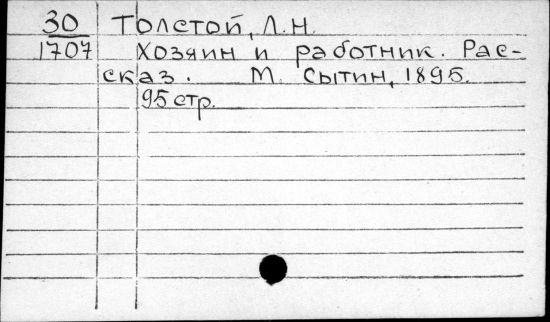 30 Толстой, Л.Н.
1707 Хозяин и работник. Рас-
сказ. М. Сытин, 1895.
95 стр.